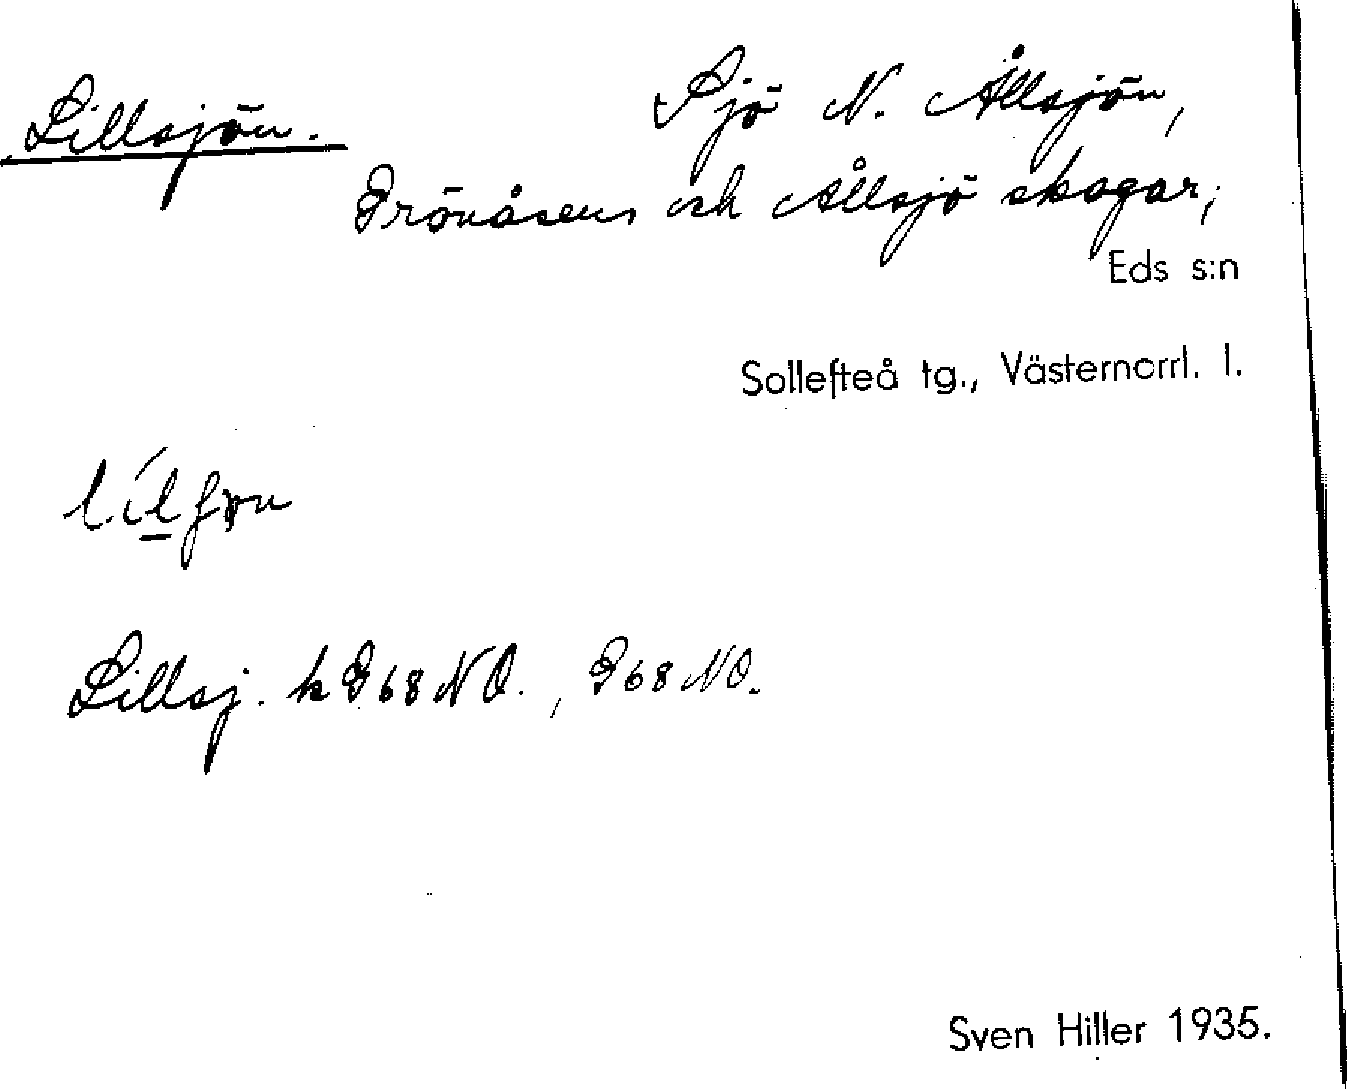 Lillsjön. Sjö N. Ållsjön,
Grönåsens och Ållsjö skogar;
Eds s:n
Sollefteå tg., Västernorrl. l.
Lillsj. k G68NO., G68 NO.
Sven Hiller 1935.